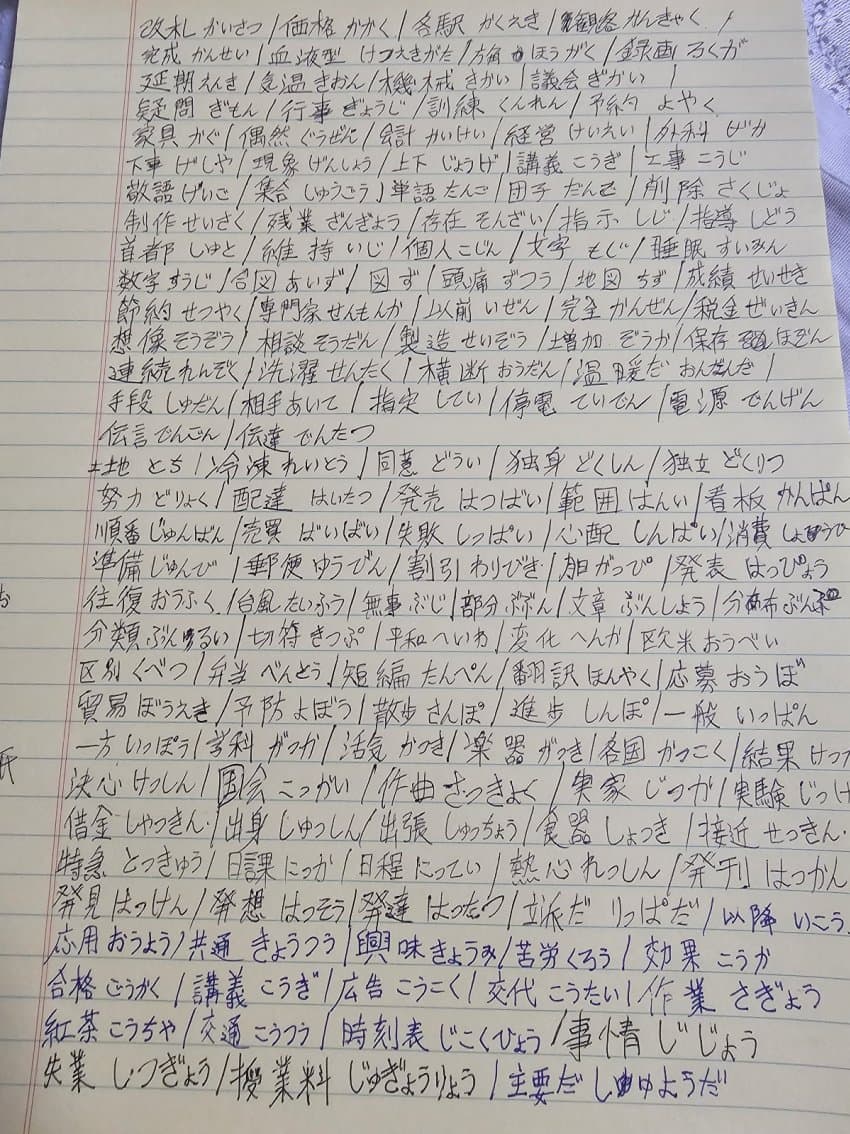 改札 かいさつ/価格 かかく/各駅 かくえき/観客 かんきゃく/
完成 かんせい/血液型 けつえきがた/方角 ほうがく/録画 ろくが
延期 えんき/気温 きおん/機械 きかい/議会 ぎかい/
疑問 ぎもん/行事 ぎょうじ/訓練 くんれん/予約 よやく
家具 かぐ/偶然 ぐうぜん/会計 かいけい/経営 けいえい/外科 げか
下車 げしゃ/現象 げんしょう/上下 じょうげ/講義 こうぎ/工事 こうじ
敬語 けいご/集合 しゅうごう/単語 たんご/団子 だんご/削除 さくじょ
制作 せいさく/残業 ざんぎょう/存在 そんざい/指示 しじ/指導 しどう
首都 しゅと/維持 いじ/個人 こじん/文字 もじ/睡眠 すいみん
数字 すうじ/合図 あいず/図 ず/頭痛 ずつう/地図 ちず/成績 せいせき
節約 せつやく/専門家 せんもんか/以前 いぜん/完全 かんぜん/税金 ぜいきん
想像 そうぞう/相談 そうだん/製造 せいぞう/増加 ぞうか/保存 ほぞん
連続 れんぞく/洗濯 せんたく/横断 おうだん/温暖だ おんだんだ/
手段 しゅだん/相手 あいて/指定 してい/停電 ていでん/電源 でんげん
伝言 でんごん/伝達 でんたつ
土地 とち/冷凍 れいとう/同意 どうい/独身 どくしん/独立 どくりつ
努力 どりょく/配達 はいたつ/発売 はつばい/範囲 はんい/看板 かんばん
順番 じゅんばん/売買 ばいばい/失敗 しっぱい/心配 しんぱい/消費 しょうひ
準備 じゅんび/郵便 ゆうびん/割引 わりびき/月日 がっぴ/発表 はっぴょう
往復 おうふく/台風 たいふう/無事 ぶじ/部分 ぶぶん/文章 ぶんしよう/分布 ぶんぷ
分類 ぶんるい/切符 きっぷ/平和 へいわ/変化 へんか/欧米 おうべい
区別 くべつ/弁当 べんとう/短編 たんぺん/翻訳 ほんやく/応募 おうぼ
貿易 ぼうえき/予防 よぼう/散歩 さんぽ/進歩 しんぽ/一般 いっぱん
一方 いっぽう/学科 がっか/活気 かっき/楽器 がっき/各国 かっこく/結果 けっか
決心 けっしん/国会 こっかい/作曲 さっきょく/実家 じっか/実験 じっけ
借金 しゃっきん/出身 しゅっしん/出張 しゅっちょう/食器 しょっき/接近 せっきん
特急 とっきゅう/日課 にっか/日程 にってい/熱心 ねっしん/発刊 はっかん
発見 はっけん/発想 はっそう/発達 はったつ/立派だ りっぱだ/以降 いこう
応用 おうよう/共通 きょうつう/興味 きょうみ/苦労 くろう/効果 こうか
合格 ごうかく/講義 こうぎ/広告 こうこく/交代 こうたい/作業 さぎょう
紅茶 こうちゃ/交通 こうつう/時刻表 じこくひょう/事情 じじょう
失業 しつぎょう/授業料 じゅぎょうりょう/主要だ しゅようだ